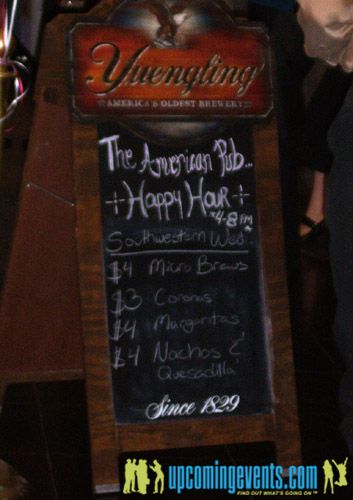 Yuengling
AMERICA'S OLDEST BREWERY
The American Pub...
Happy Hour
4-8 PM
Southwestern Wed.
$4 Micro Brews
$3 Coronas
$4 Margaritas
$4 Nachos &
Quesadilla
Since 1829
upcomingevents.com
FIND OUT WHAT'S GOING ON™